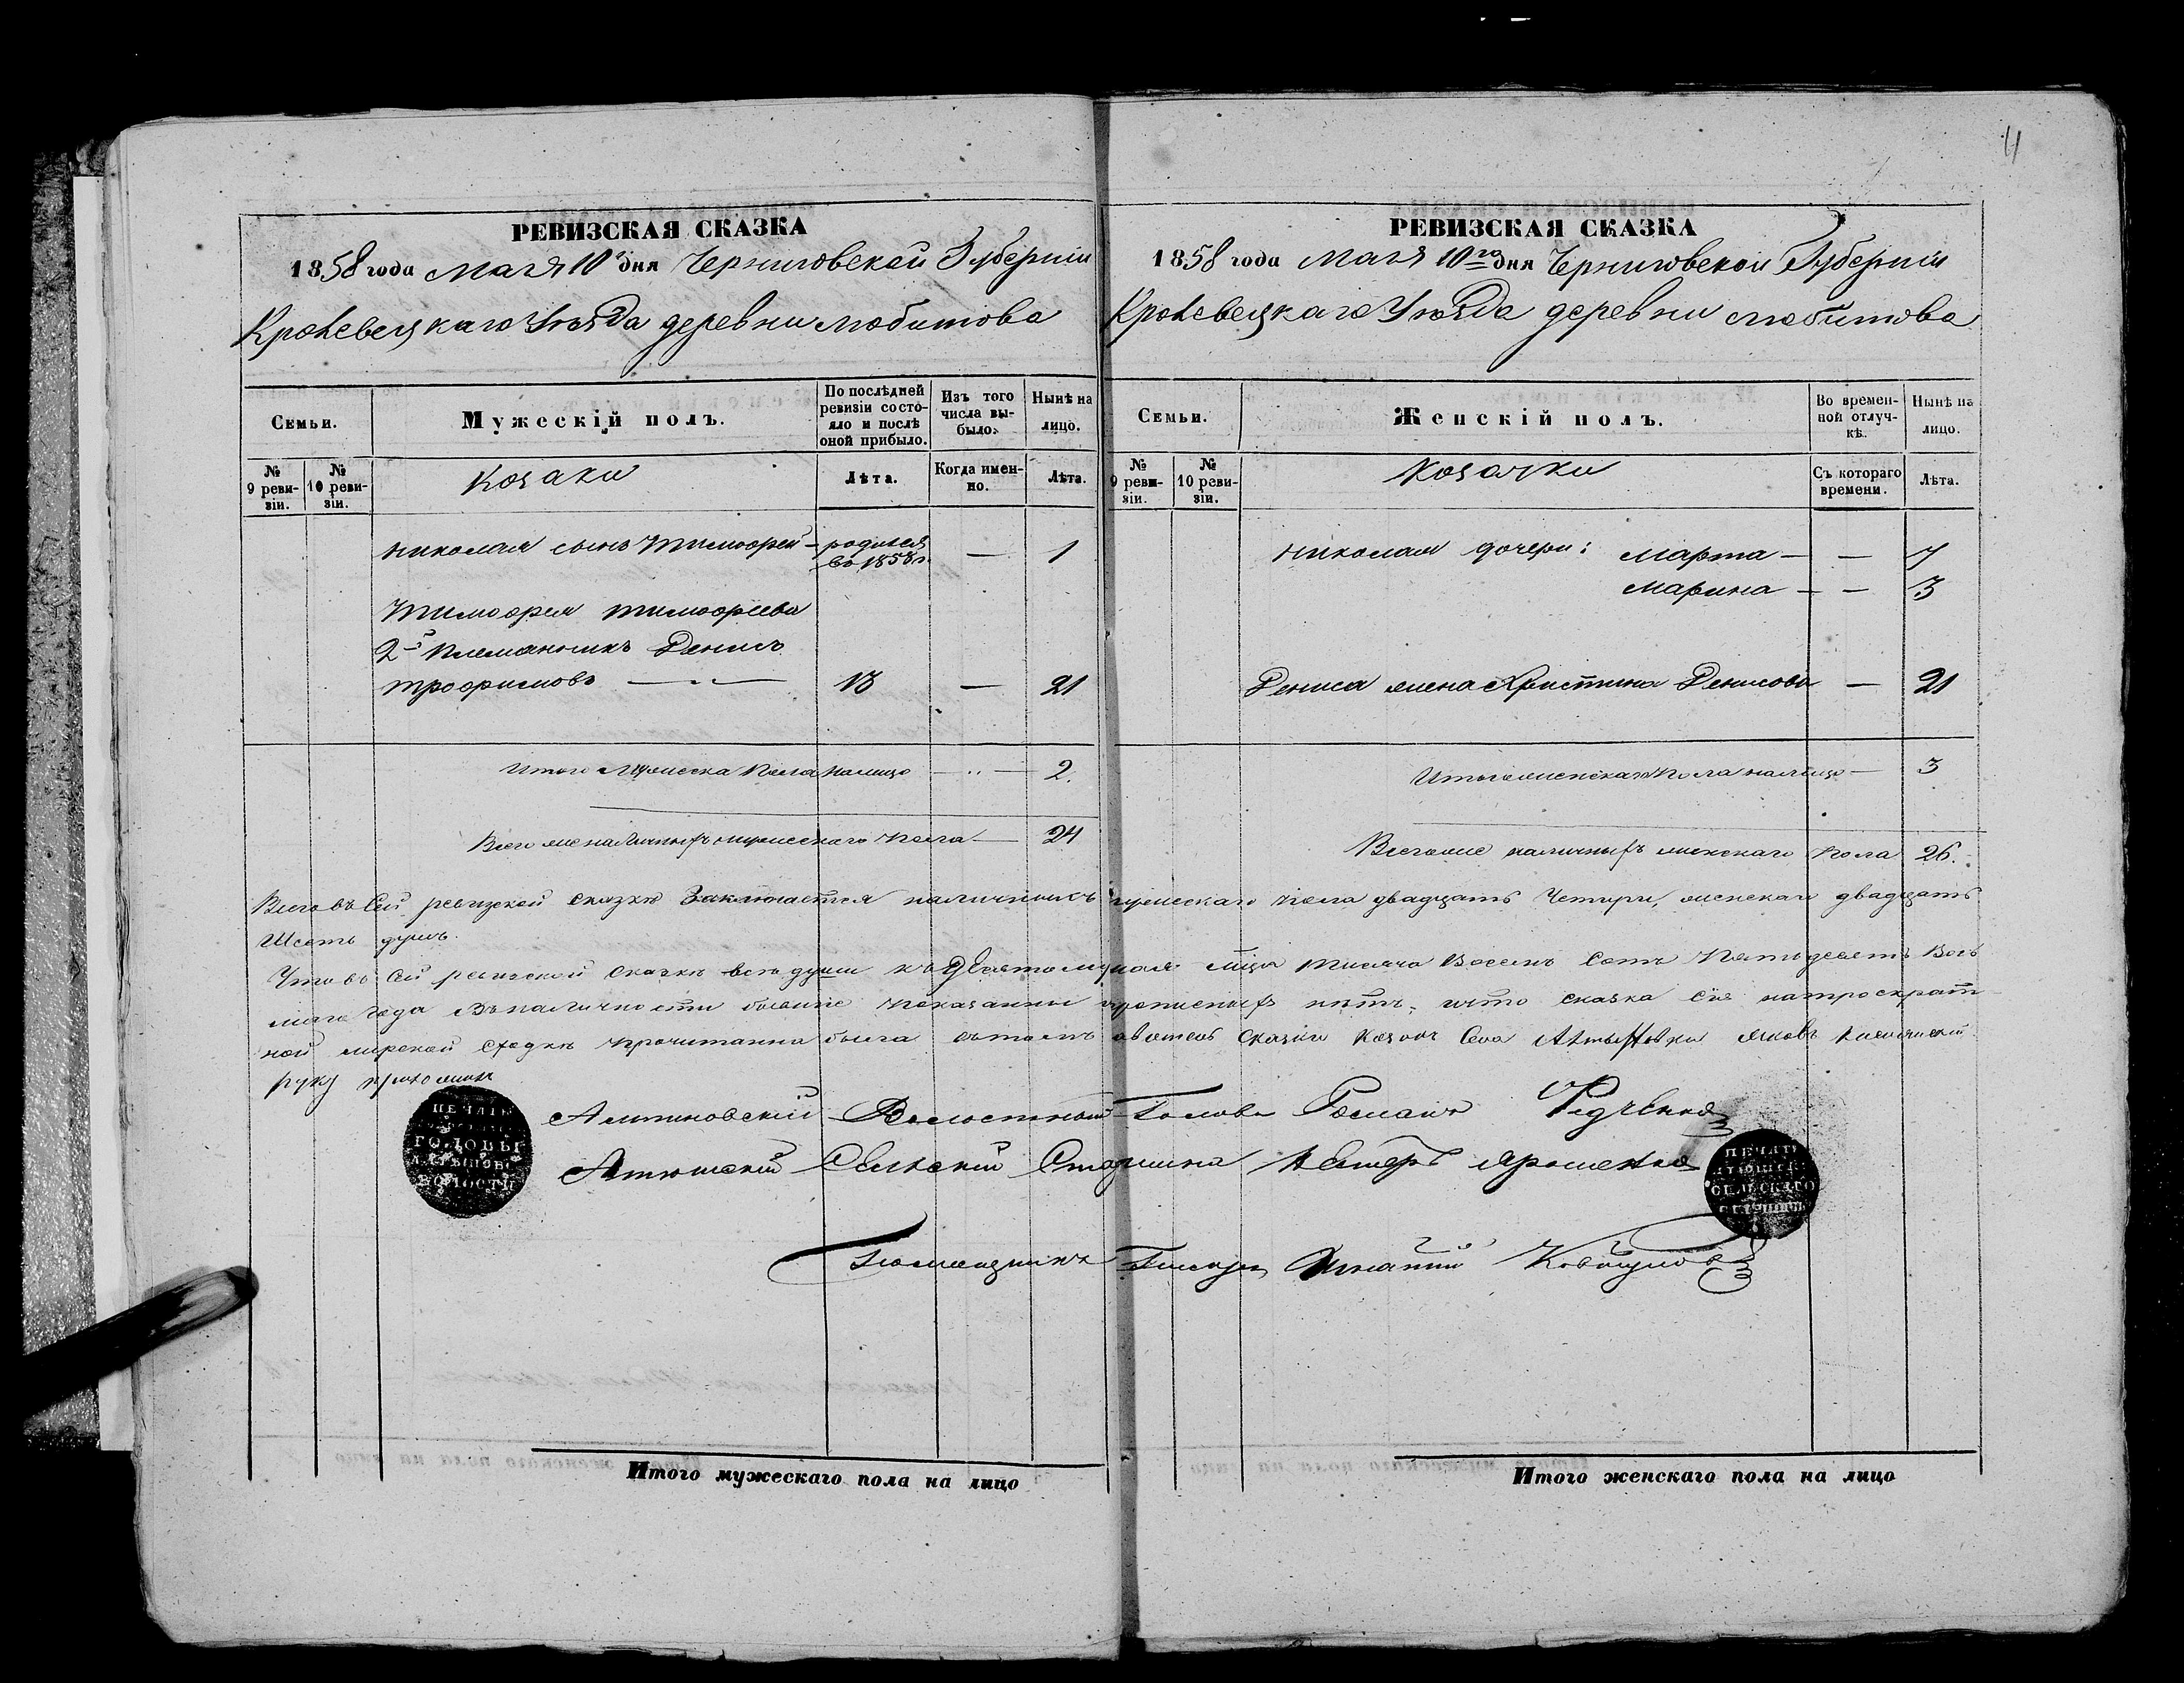 4
РЕВИЗСКАЯ СКАЗКА
1858 года Мая 10 дня Черниговской Губерніи
Кролевецкаго Уѣзда деревни Любитова
Семьи.
Мужескій полъ.
По послѣдней ревизіи состояло и послѣ оной прибыло.
Изъ того числа выбыло.
Нынѣ на лицо.
№ 9 ревизіи.
№ 10 ревизіи.
Козаки
Лѣта.
Когда именно.
Лѣта.
Николая сынъ Тимофей – родился въ 1858 г. — 1
Тимофея Тимофеева
2й Племянникъ Денисъ
Трофимовъ — 13 — 21
Итого Мужеска Пола налицо — 2.
Всего же наличныхъ мужескаго пола — 24
РЕВИЗСКАЯ СКАЗКА
1858 года Мая 10го дня Черниговской Губерніи
Кролевецкаго Уѣзда деревни Любитова
Семьи.
Женскій полъ.
Во временной отлучкѣ.
Нынѣ на лицо.
№ 9 ревизіи.
№ 10 ревизіи.
Козачки
Съ котораго времени.
Лѣта.
Николая дочери: Марфа — — 7
Марина — — 3
Дениса жена Христина Денисова — 21
Итого женскаго пола налицо — 3
Всего же наличныхъ женскаго пола 26.
Всего въ Сей ревизской сказкѣ Заключается наличныхъ мужескаго пола двадцать Четыри, женскаго двадцать
Шесть душъ.
Что въ Сей ревизской сказкѣ всѣ души къ Десятому мая мца тисяча Восемь Сотъ Пятьдесятъ Вось
маго года въ наличности бывшіе показанны прописныхъ нѣтъ, и что сказка сія на троекрат
ной мирской сходкѣ прочитанна была въ томъ сказки Козакъ Села Алтыновки Яковъ
руку приложилъ
Алтиновскій Волостной Голова Романъ Редченко
Атюшскій Сельскій Старшина Яроменко
Помощникъ Писаря Игнатій
ПЕЧАТЬ
ГОЛОВЫ
ВОЛОСТИ
ПЕЧАТЬ
СЕЛЬСКАГО
СТАРШИНЫ
Итого мужескаго пола на лицо
Итого женскаго пола на лицо